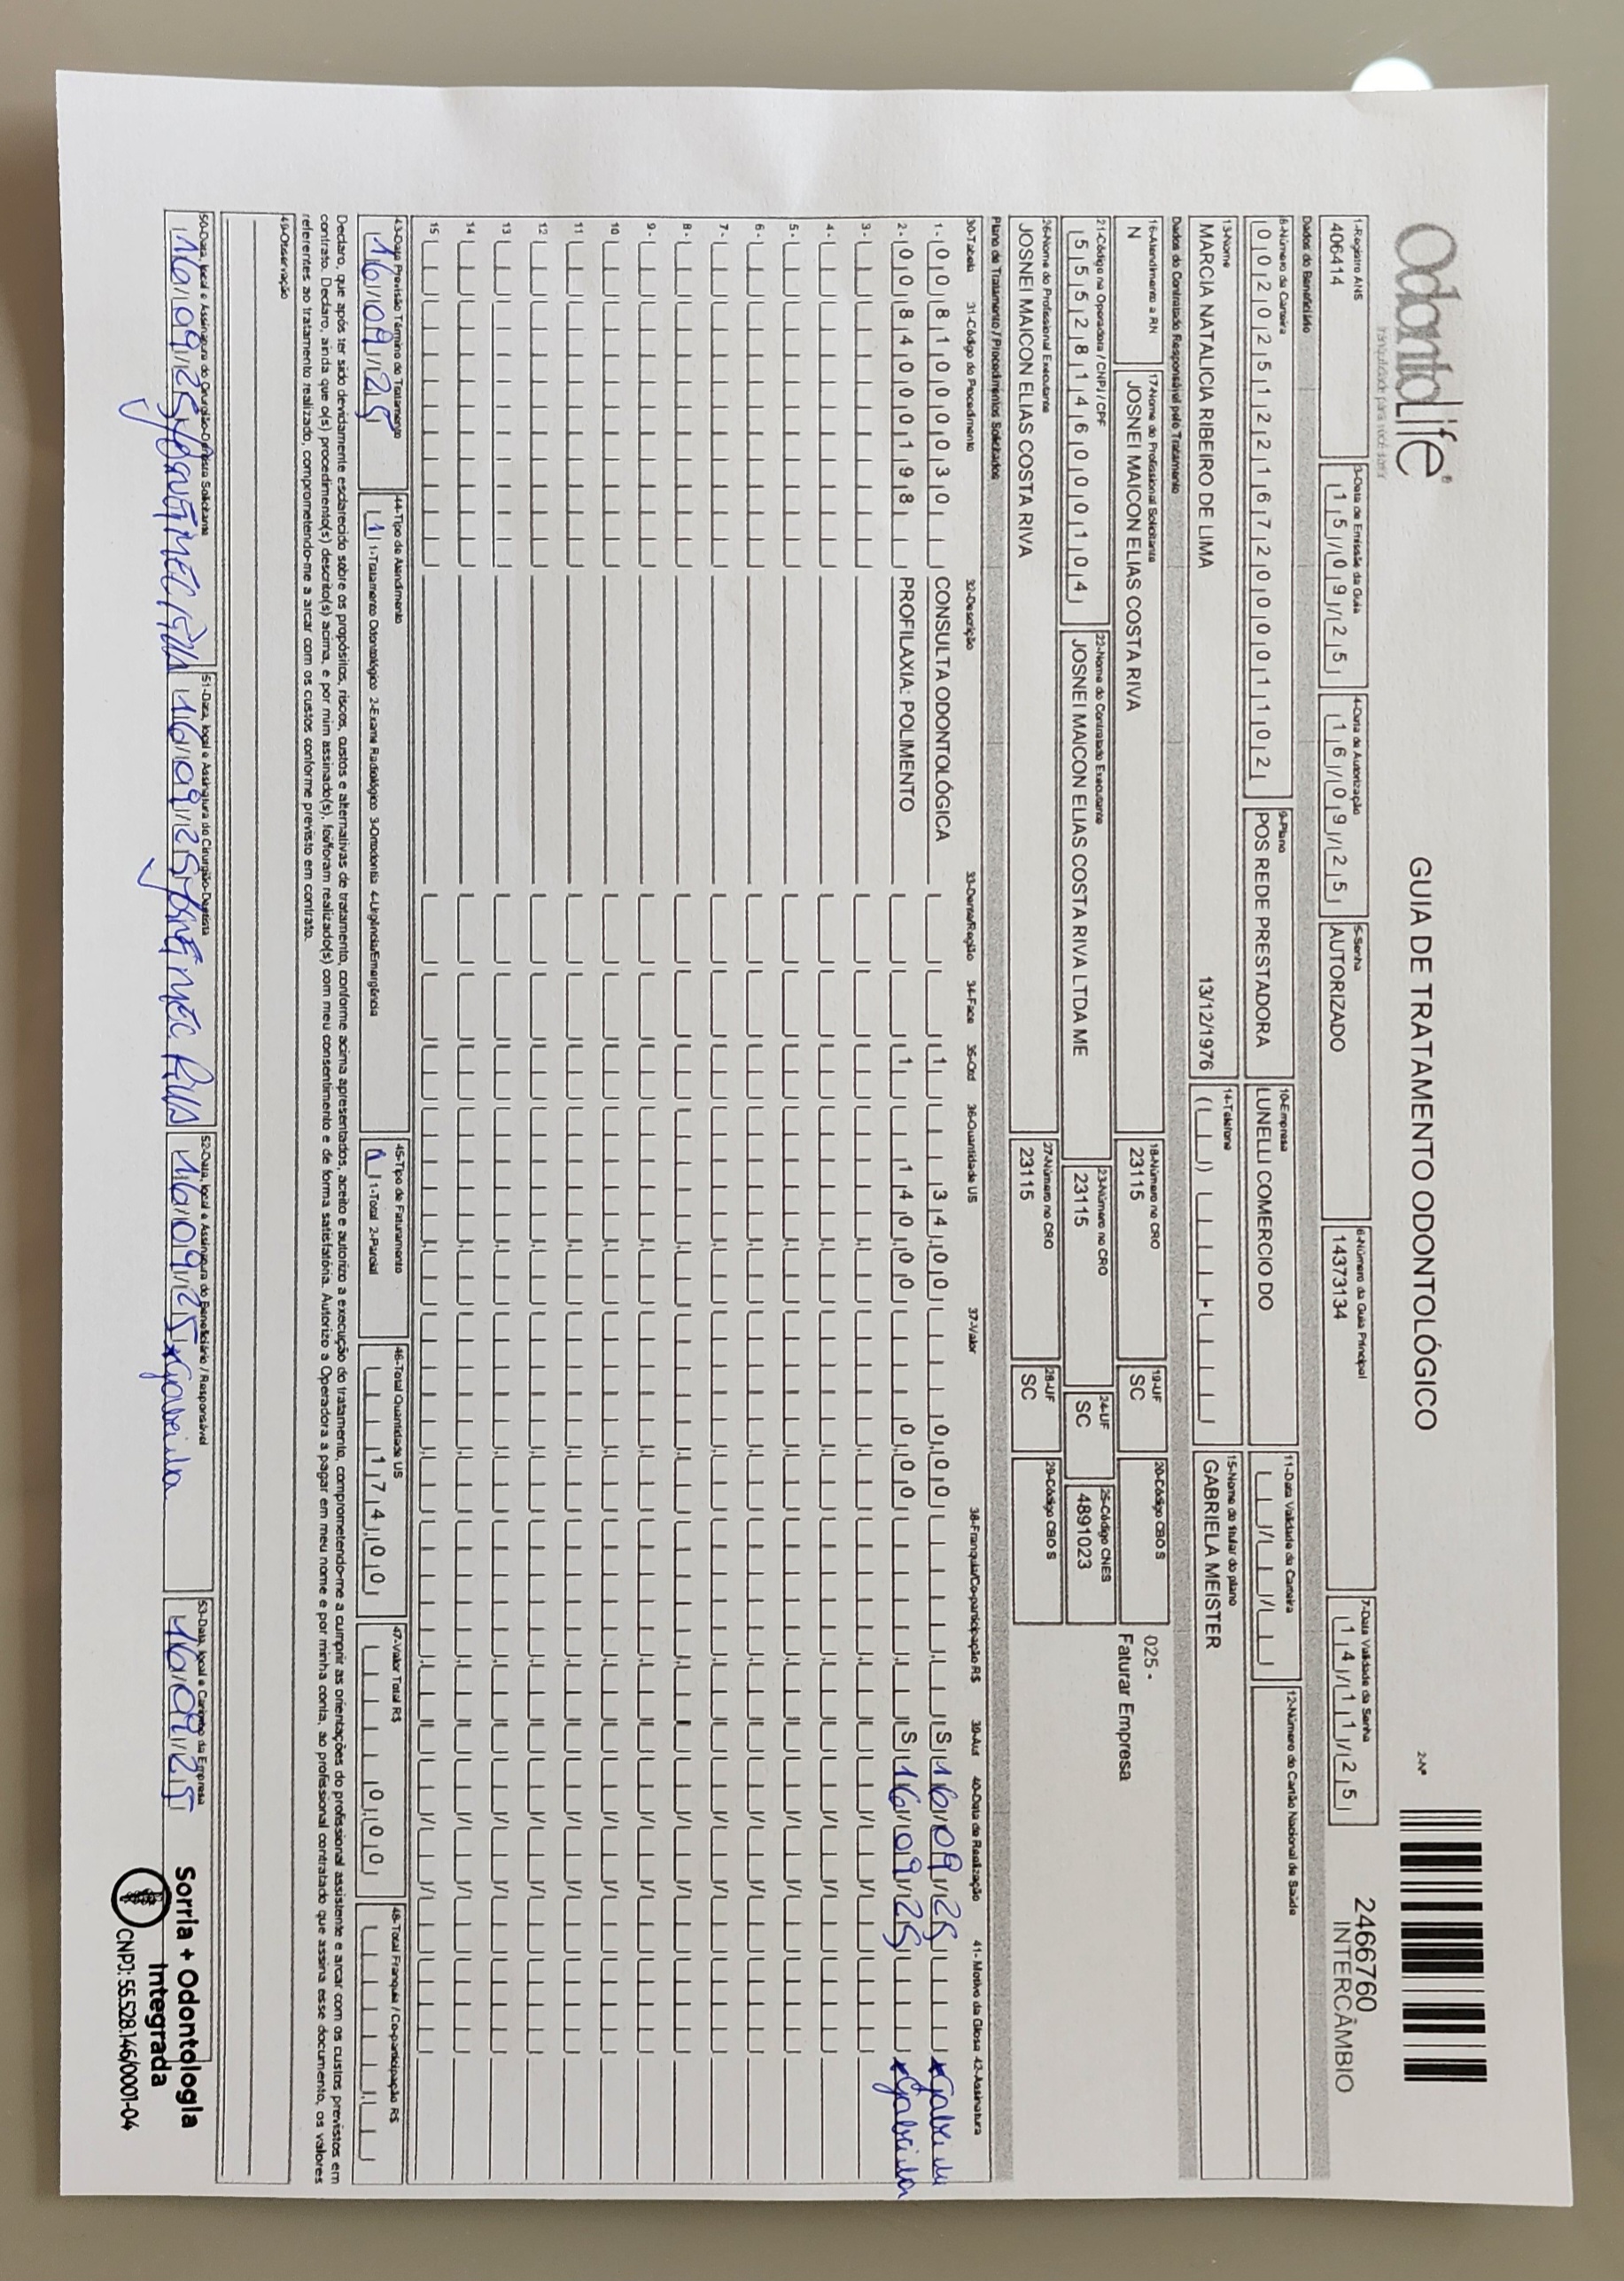 OdontoLife®
GUIA DE TRATAMENTO ODONTOLÓGICO
2-Nº
2466760
INTERCÂMBIO
1-Registro ANS
406414
3-Data de Emissão da Guia
15/09/25
4-Data de Autorização
16/09/25
5-Senha
AUTORIZADO
6-Número da Guia Principal
14373134
7-Data Validade da Senha
14/11/25
Dados do Beneficiário
8-Número da Carteira
002025122167200001102
9-Plano
POS REDE PRESTADORA
10-Empresa
LUNELLI COMERCIO DO
11-Data Validade da Carteira
12-Número do Cartão Nacional de Saúde
13-Nome
MARCIA NATALICIA RIBEIRO DE LIMA 13/12/1976
14-Telefone
15-Nome do titular do plano
GABRIELA MEISTER
Dados do Contratado Responsável pelo Tratamento
16-Atendimento a RN
N
17-Nome do Profissional Solicitante
JOSNEI MAICON ELIAS COSTA RIVA
18-Número no CRO
23115
19-UF
SC
20-Código CBO S
025 -
Faturar Empresa
21-Código na Operadora / CNPJ / CPF
55528146000104
22-Nome do Contratado Executante
JOSNEI MAICON ELIAS COSTA RIVA LTDA ME
23-Número no CRO
23115
24-UF
SC
25-Código CNES
4891023
26-Nome do Profissional Executante
JOSNEI MAICON ELIAS COSTA RIVA
27-Número no CRO
23115
28-UF
SC
29-Código CBO S
Plano de Tratamento / Procedimentos Solicitados
30-Tabela 31-Código do Procedimento 32-Descrição 33-Dente/Região 34-Face 35-Qtd 36-Quantidade US 37-Valor 38-Franquia/Co-participação R$ 39-Aut 40-Data de Realização 41- Motivo da Glosa 42-Assinatura
1- 00 81000030 CONSULTA ODONTOLÓGICA 1 34,00 0,00 S 16/09/25
2- 00 84000198 PROFILAXIA: POLIMENTO 1 140,00 0,00 S 16/09/25
3-
4-
5-
6-
7-
8-
9-
10
11
12
13
14
15
43-Data Previsão Término do Tratamento
16/09/25
44-Tipo de Atendimento
1 1-Tratamento Odontológico 2-Exame Radiológico 3-Ortodontia 4-Urgência/Emergência
45-Tipo de Faturamento
1 1-Total 2-Parcial
46-Total Quantidade US
174,00
47-Valor Total R$
0,00
48-Total Franquia / Co-participação R$
Declaro, que após ter sido devidamente esclarecido sobre os propósitos, riscos, custos e alternativas de tratamento, conforme acima apresentados, aceito e autorizo a execução do tratamento, comprometendo-me a cumprir as orientações do profissional assistente e arcar com os custos previstos em
contrato. Declaro, ainda que o(s) procedimento(s) descrito(s) acima, e por mim assinado(s), foi/foram realizado(s) com meu consentimento e de forma satisfatória. Autorizo a Operadora a pagar em meu nome e por minha conta, ao profissional contratado que assina esse documento, os valores
referentes ao tratamento realizado, comprometendo-me a arcar com os custos conforme previsto em contrato.
49-Observação
50-Data, local e Assinatura do Cirurgião-Dentista Solicitante
16/09/25
51-Data, local e Assinatura do Cirurgião-Dentista
16/09/25
52-Data, local e Assinatura do Beneficiário / Responsável
16/09/25
53-Data, local e Carimbo da Empresa
16/09/25
Sorria + Odontologia
Integrada
CNPJ: 55.528.146/0001-04